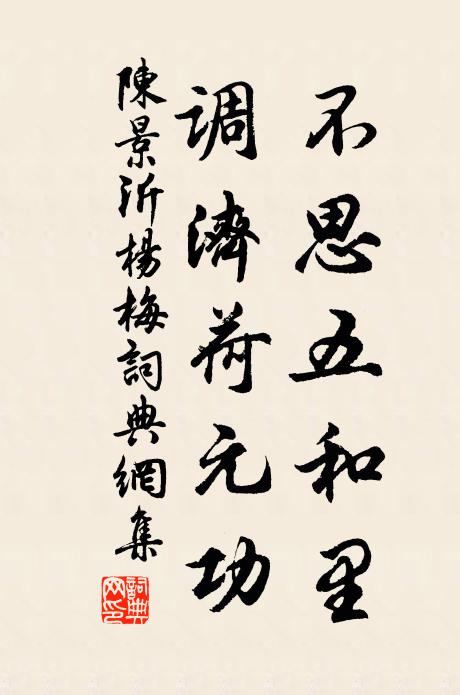 不思五和里
調濟荷元功
陳景沂楊梅詞典網集
詞典網印